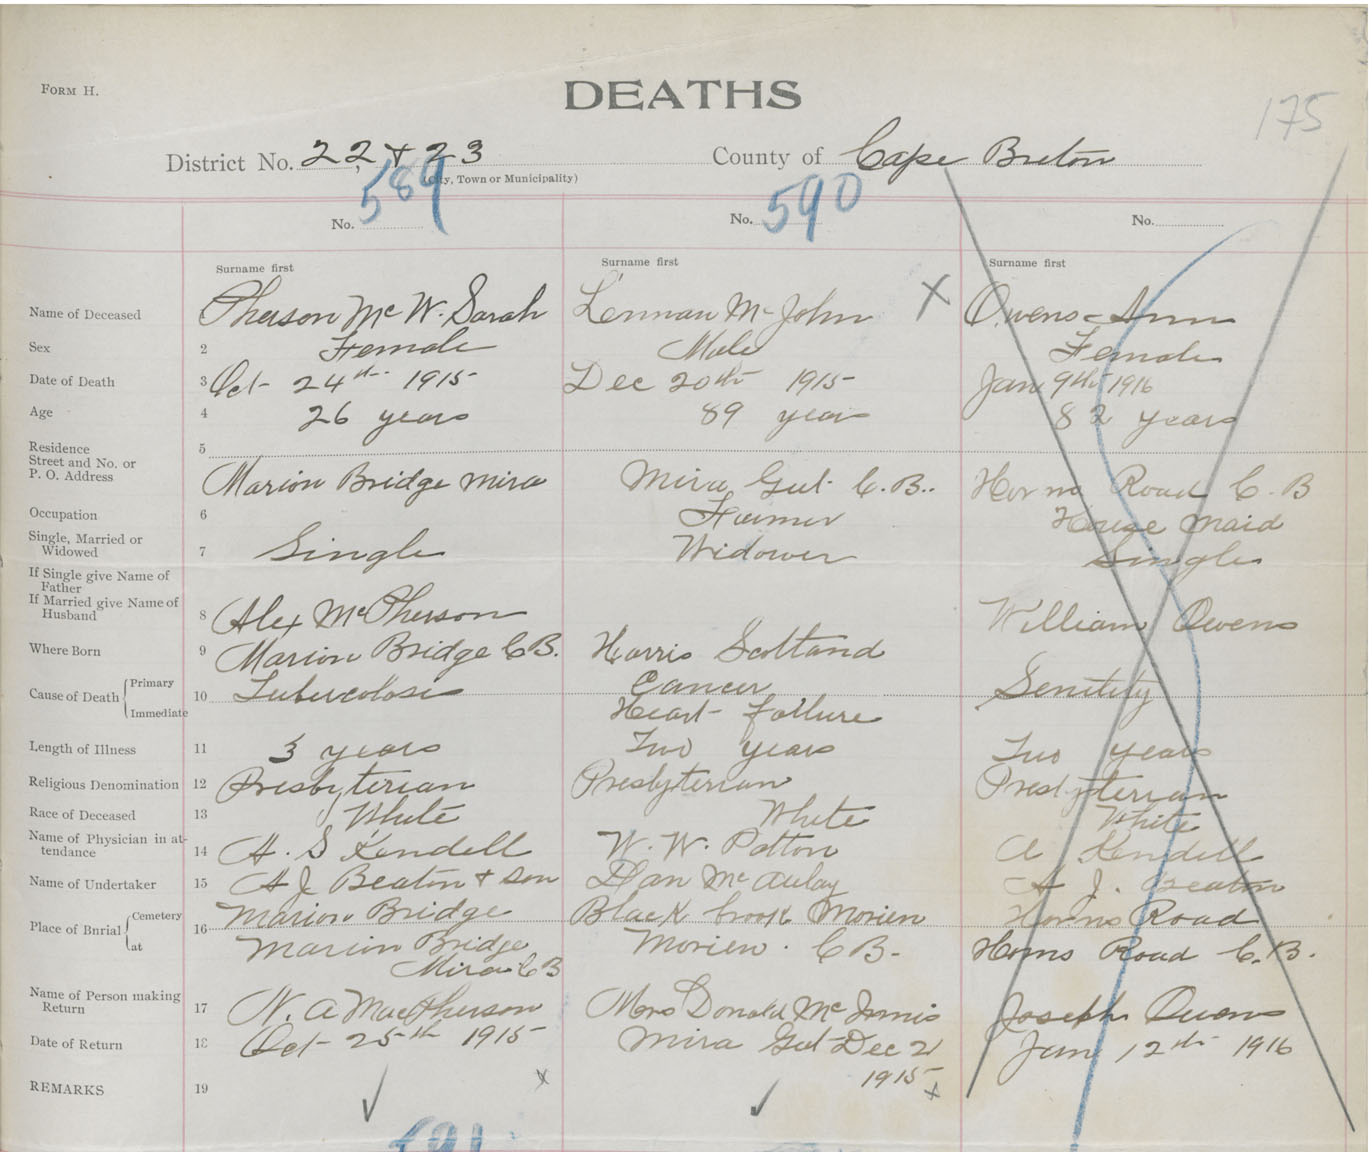 FORM H.
DEATHS
175
District No. 22 + 23
(City, Town or Municipality)
County of Cape Breton
No. 589
No. 590
No.
Surname first
Surname first
Surname first
Name of Deceased Pherson Mc W. Sarah Lennan Mc John X Owens Ann
Sex 2 Female Male Female
Date of Death 3 Oct 24th 1915 Dec 20th 1915 Jan 9th 1916
Age 4 26 years 89 years 82 years
Residence 5
Street and No. or
P. O. Address Marion Bridge Mira Mira Gut C.B. Horns Road C. B
Occupation 6 Farmer House Maid
Single, Married or
Widowed 7 Single Widower Single
If Single give Name of
Father
If Married give Name of
Husband 8 Alex McPherson William Owens
Where Born 9 Marion Bridge C B. Harris Scotland
Cause of Death Primary 10 Tuberculosis Cancer Senility
Immediate Heart failure
Length of Illness 11 3 years Two years Two years
Religious Denomination 12 Presbyterian Presbyterian Presbyterian
Race of Deceased 13 White White White
Name of Physician in at-
tendance 14 A. S Kendell W. W. Patton A Kendell
Name of Undertaker 15 A J Beaton + Son Dan McAulay A J. Beaton
Place of Burial Cemetery 16 Marion Bridge Black brook Morien Horns Road
at Marion Bridge Morien. C B. Horns Road C. B.
Mira C B
Name of Person making
Return 17 N. A MacPherson Mrs Donald McInnis Joseph Owens
Date of Return 18 Oct 25th 1915 Mira Gut Dec 21 Jan 12th 1916
1915
REMARKS 19 x x
591